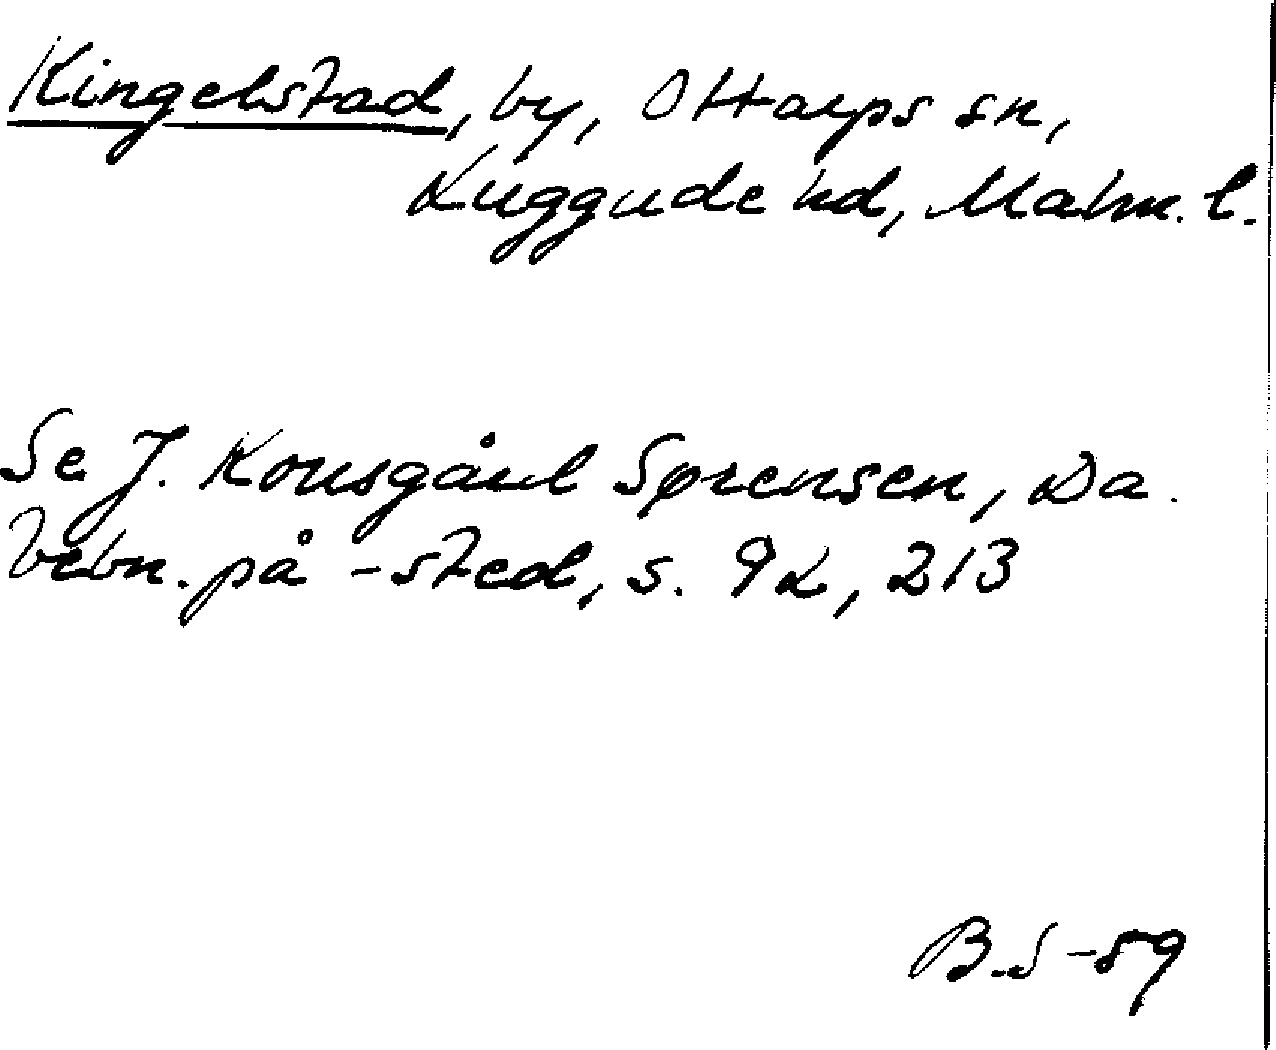 Kingelstad, by, Ottarps sn,
Luggude hd, Malm. l.
Se J. Kousgård Sørensen, Da.
bebn. på -sted, s. 92, 213
B.S -59